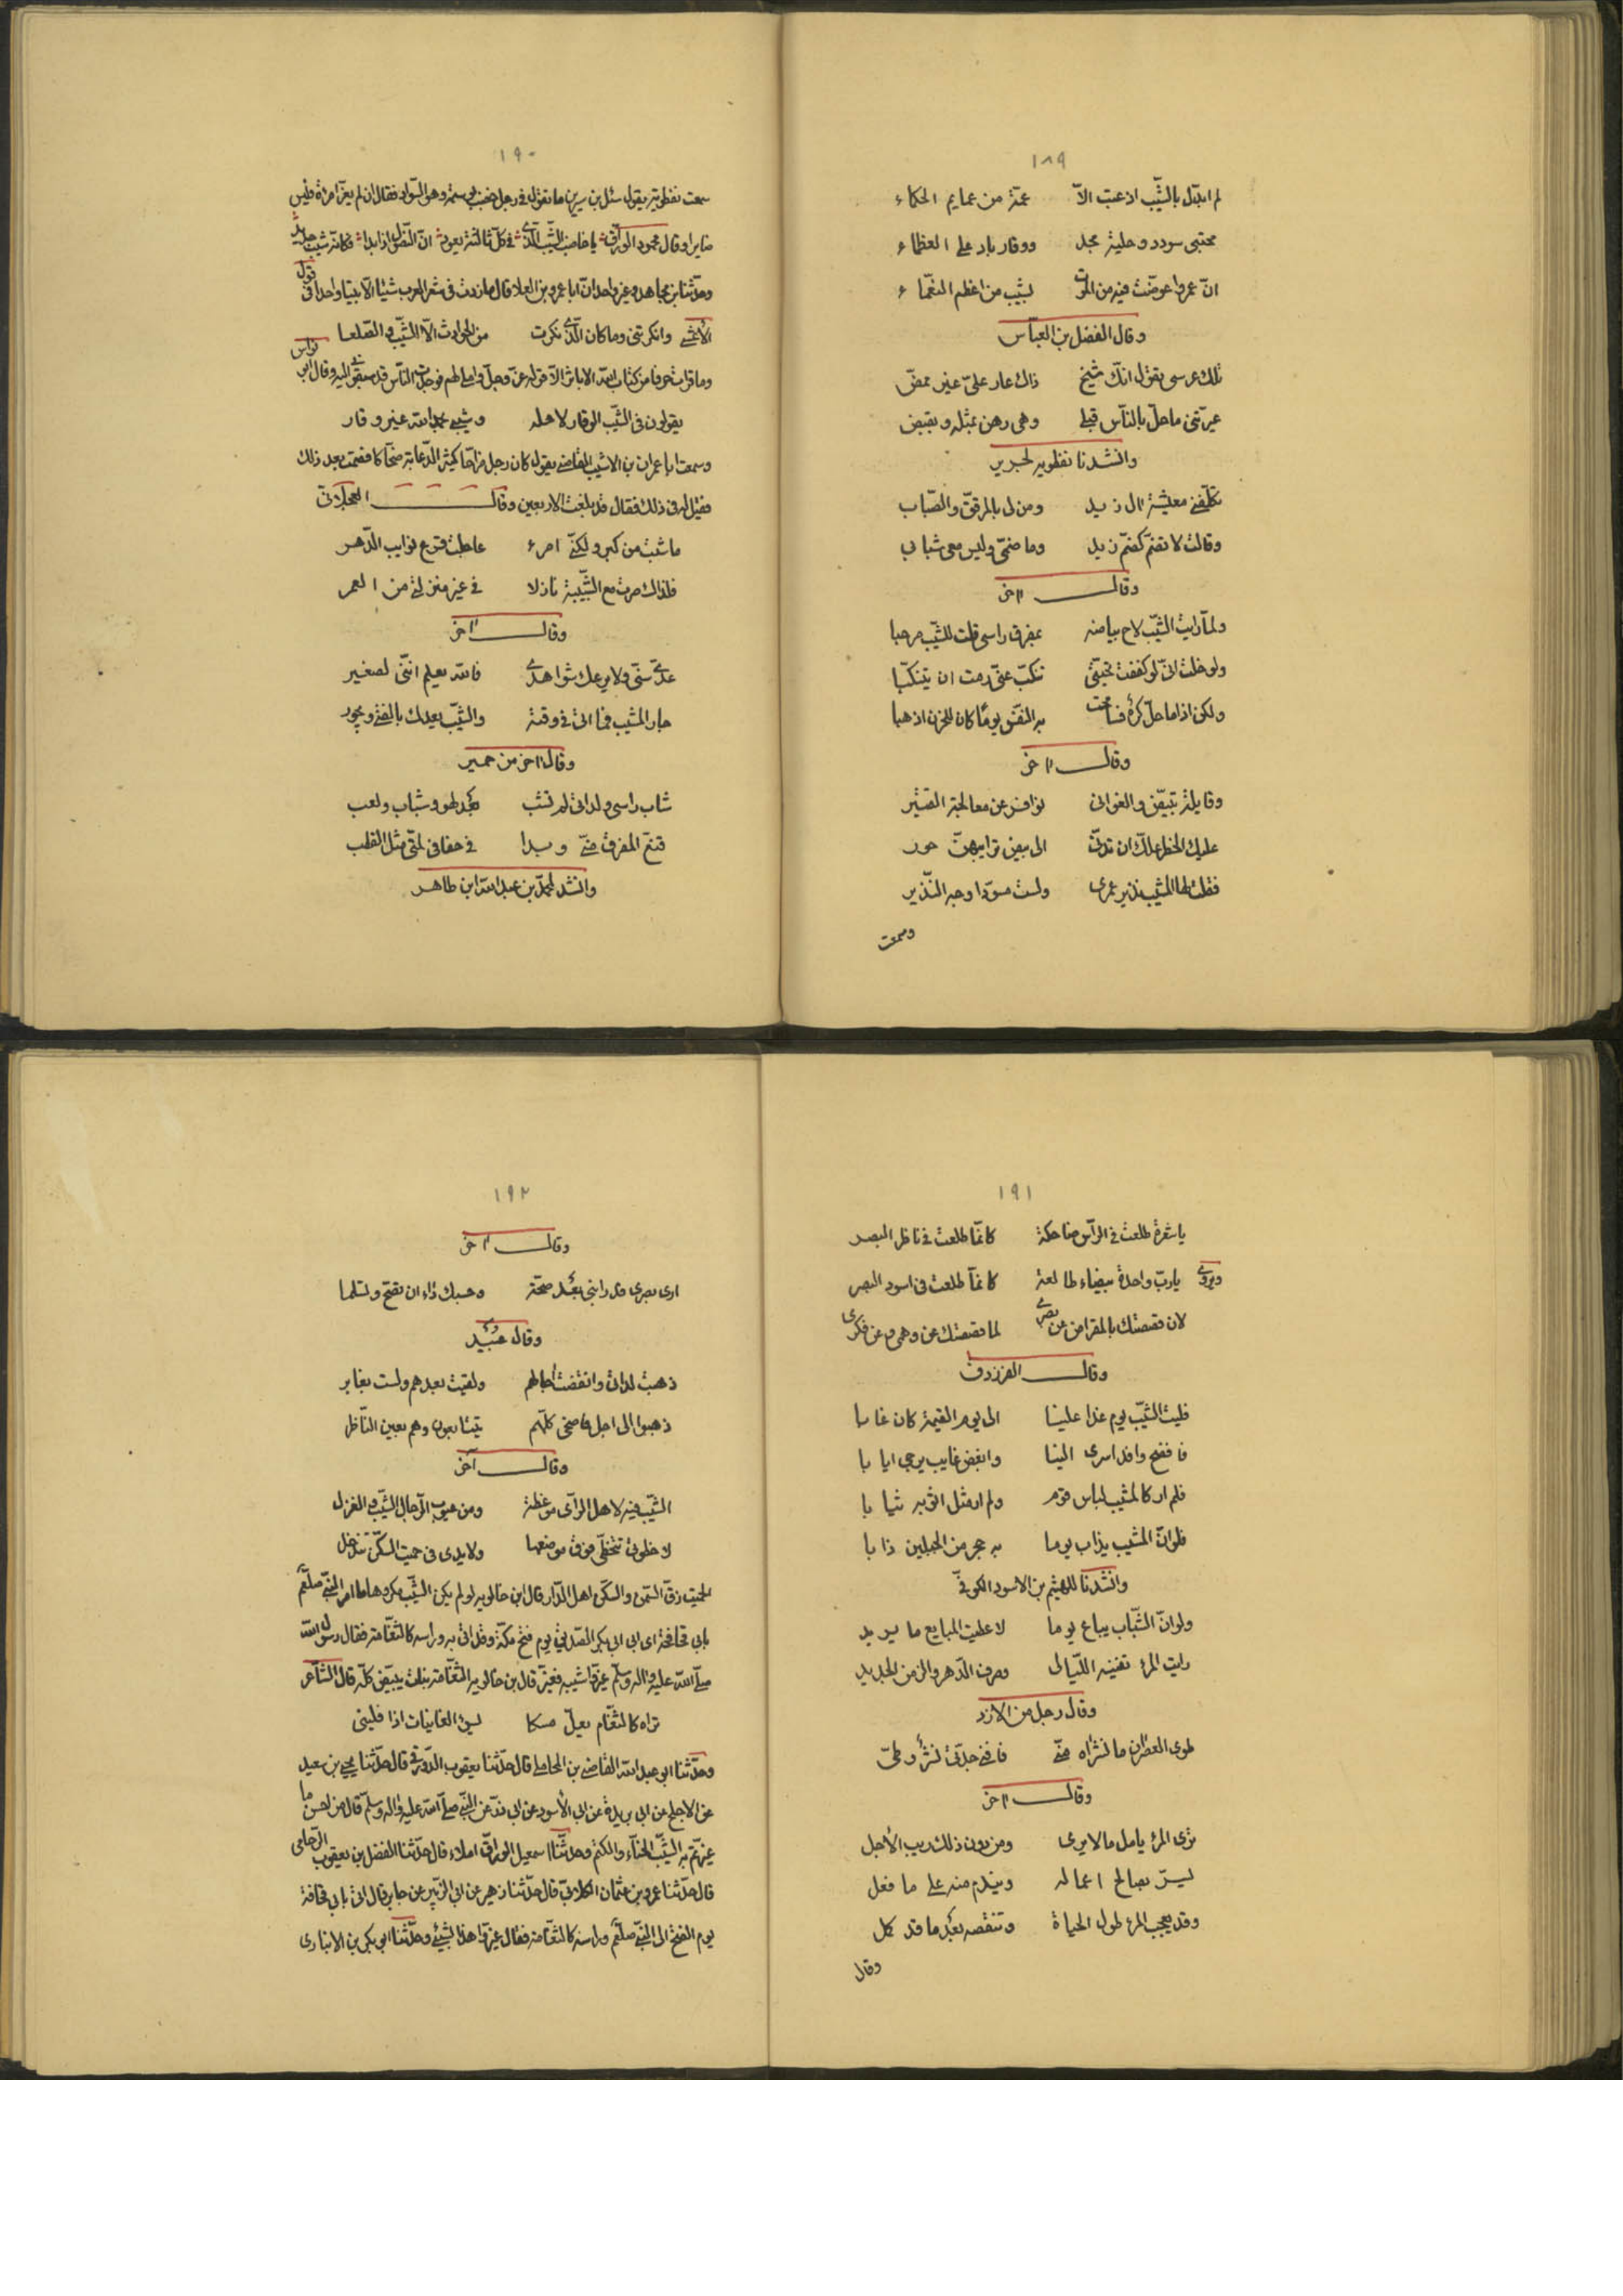 ١٨٩
لم ابتدل بالشّيب اذ عبت الاّ عمّة من عمايم الحكماء
مجتبى سودد وحلية مجد ووقار باد على العظماء
انّ عمرا عوّضت فيه من الموت لشيب من اعظم النعماء
وقال الفضل بن العبّاس
تلك عرسى تقول انّك شيخ ذاك عار علىّ غير ممضّ
عيرتنى ما حلّ بالناس قبلى وهى رهن بمثله وبقبض
وانشدنا نفطويه لجرير
تكلّفنى معيشة آل زيد ومن لى بالمرقّق والصّناب
وقالت لا تضمّ كضمّ زيد وما ضمّى وليس معى شبابى
وقال آخر
ولمّا رايت الشّيب لاح بياضه بمفرق راسى قلت للشّيب مرحبا
ولو خلت انّى لو كففت تحيّتى تنكّب عنّى رمت ان يتنكّبا
ولكن اذا ما حلّ كره فسامحت به النفس يوما كان للحزن اذهبا
وقال آخر
وقايلة تبيّض والغوانى نوافر عن معالجة القتير
عليك الخطر علّك ان تدنّى الى بيض ترايبهنّ حور
فقلت لها المشيب نذير عمرى ولست مسوّدا وجه النّذير
وسمعت
١٩٠
سمعت نفطويه يقول سئل بن سيرين ما تقول فى رجل خضب بوسمة وهو السّواد فقال ان لم يغرّ امراة فليس
ضايرا وقال محمود الورّاق يا خاضب الشّيب الّذى فى كلّ ثالثة يعود انّ النّصول اذا بدا فكانّه شيب جديد
وحدّثنا بن مجاهد وغير واحد انّ ابا عمرو بن العلا قال ما زدت فى شعر العرب شيئا الاّ بيتا واحدا فى قول
الأعشى وانكرتنى وما كان الّذى نكرت من الحوادث الاّ الشّيب والصّلعا
وما قرات حرفا من كتاب الله الا باثر الاّ قوله عزّ وجلّ واملى لهم فوجدت النّاس قد سبقونى اليه وقال ابو نواس
يقولون فى الشّيب الوقار لاهله وشيبى بحمد الله غير وقار
وسمعت ابا عمران بن الاشيب القاضى يقول كان رجل مزّاحا كثير الدّعابة ضحّاكا فصمت بعد ذلك
فقيل له فى ذلك فقال قد بلغت الاربعين وقال العجلانى
ما شبت من كبر ولكنّى امرء عاطبت قرع نوايب الدّهر
فلذاك صرت مع الشّبيبة نازلا فى غير منزلتى من العمر
وقال آخر
عدّى سنّى ولا يرعك شواهدى فالله يعلم انّنى لصغير
جار المشيب فما اتى فى وقته والشّيب يعدل بالفتى ويجور
وقال آخر من حمير
شاب راسى ولداتى لم تشب بعد لهو وشباب ولعب
قتم المفرق منّى وبدا فى حفافى لمّتى مثل القطب
وانشد لمحمّد بن عبد الله ابن طاهر
١٩١
يا شعرة طلعت فى الرّاس ضاحكة كانّما طلعت فى ناظر البصر
ويروى يا ربّ واحدة بيضاء طالعة كانّما طلعت فى اسود البصر
لان قصصتك بالمقراض عن بصرى لما قصصتك عن وهمى وعن فكرى
وقال الفرزدق
فليت الشّيب يوم غدا علينا الى يوم القيمة كان غابا
فافضح وافد اسرى الينا وابغض غايب يرجى ايابا
فلم ار كالمشيب لباس قوم ولم ار مثل اثوبه ثيابا
فلو انّ المشيب يذاب يوما به حجر من الجبلين ذابا
وانشدنا للهيثم بن الاسود الكوفىّ
ولو انّ الشّباب يباع يوما لاعطيت المبايع ما يريد
رايت المرء تفنيه اللّيالى وصرف الدّهر والزمن الجديد
وقال رجل من الازد
طوى العصران ما نشراه منّى فافنى جدّتى نشر وطىّ
وقال آخر
ترى المرء يامل ما لا يرى ومن دون ذلك ريب الأجل
ليسرّ بصالح اعماله ويندم منه على ما فعل
وقد يعجب المرء طول الحياة وتنقصه بعد ما قد كمل
وقال
١٩٢
وقال آخر
ارى بصرى قد رابنى بعد صحّة وحسبك داء ان تصحّ وتسلما
وقال عبيد
ذهبت لداتى وانقضت آجالهم وبقيت بعدهم ولست بغابر
ذهبوا الى اجل فاضحى كلّهم يتتابعون وهم بعين النّاظر
وقال آخر
الشّيب فيه لاهل الرّاى موعظة ومن عيوب الرّجال الشّيب والغزل
لا خطوتى تتخطّى فوق موضعها ولا يدى فى حميت السّكن تندخل
الحميت زقّ السّمن والسّكن اهل الدّار قال ابن خالويه لو لم يكن الشّيب مكروها ما امر النّبىّ صلعم
بابى قحافة اى ابى ابى بكر الصّديق يوم فتح مكّة وقد اتى به وراسه كالثّغامة فقال رسول الله
صلّى الله عليه واله وسلّم غيّروا شيبه فغيّر قال بن خالويه الثّغامة نبات يبيّض كلّه قال الشّاعر
تراه كالثّغام يعلّ مسكا يسوء الغانيات اذا فلينى
وحدّثنا ابو عبد الله القاضى بن المحاملى قال حدّثنا يعقوب الدّورقى قال حدّثنا يحيى بن سعيد
عن الاجلح عن ابى بريدة عن ابى الأسود عن ابى ذرّ عن النّبى صلّى الله عليه واله وسلّم قال من احسن ما
غيّرتم به الشّيب الحنّاء والكتم وحدّثنا اسمعيل الورّاق املاء قال حدّثنا الفضل بن يعقوب الرّخامى
قال حدّثنا عمرو بن عثمان الكلابىّ قال حدّثنا زهير عن ابى الزّبير عن جابر قال اتى بابى قحافة
يوم الفتح الى النّبى صلعم وراسه كالثّغامة فقال غيّروا هذا بشيئ وحدّثنا ابو بكر بن الانبارى